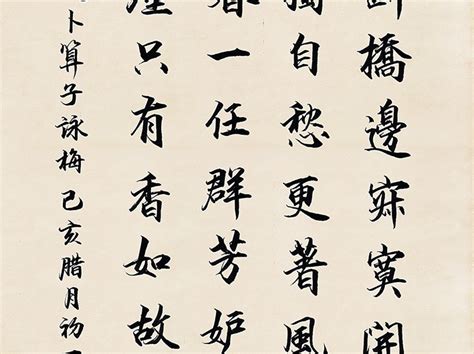 斷橋邊寂寞開
獨自愁更著風
春一任群芳妒
塵只有香如故
卜算子詠梅己亥腊月初